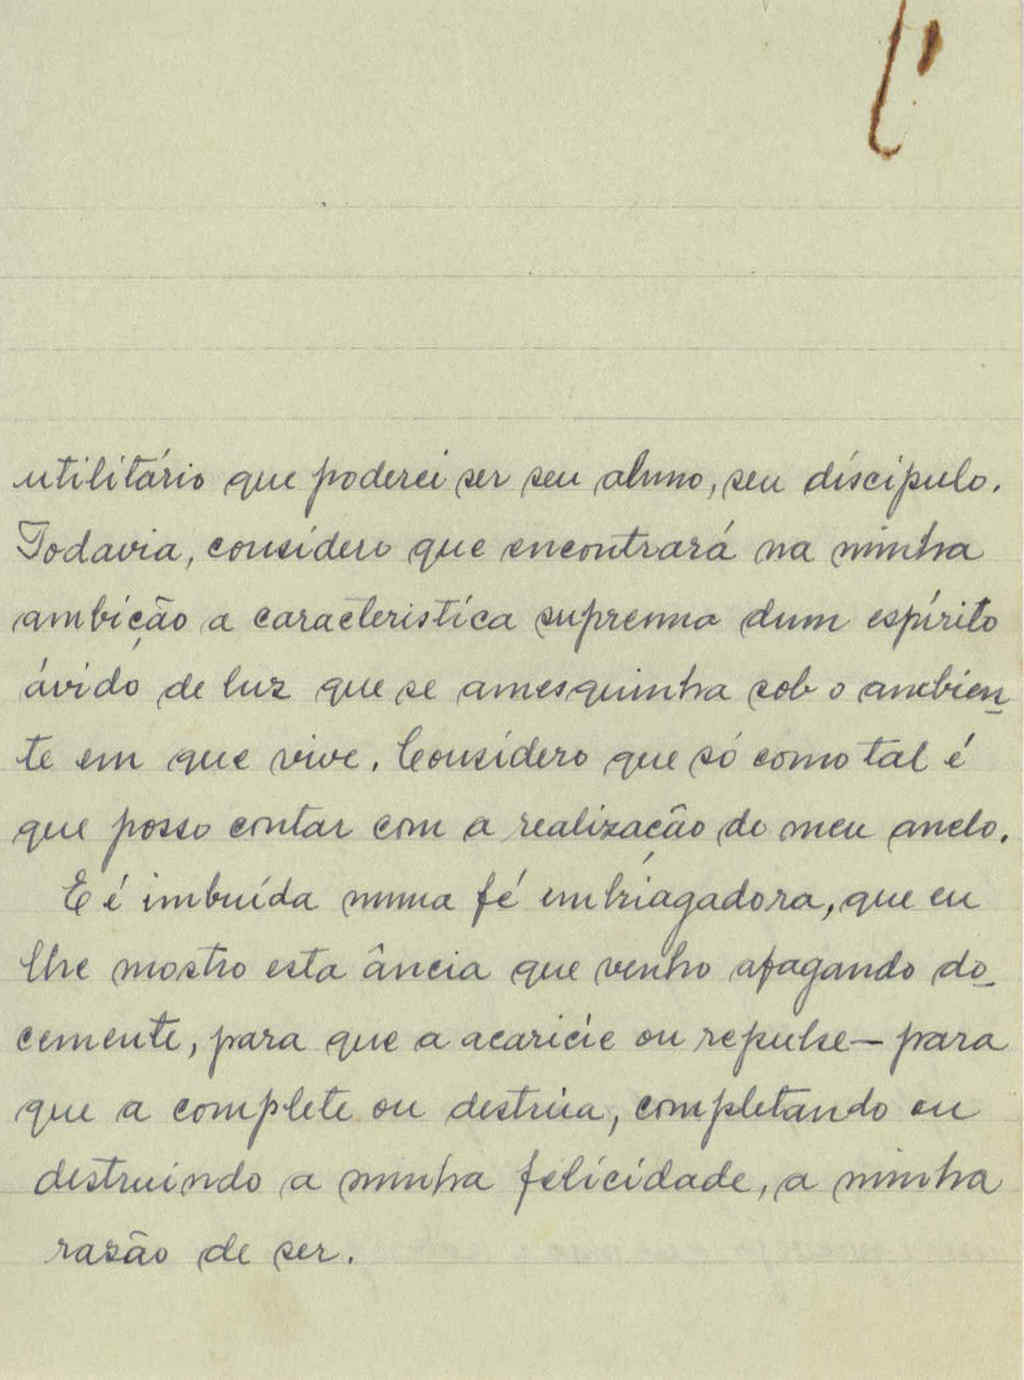 utilitário que poderei ser seu aluno, seu díscipulo.
Todavia, considero que encontrará na minha
ambição a caracteristica suprema dum espírito
ávido de luz que se amesquinha sob o ambien-
te em que vive. Considero que só como tal é
que posso contar com a realização do meu anelo.
E é imbuída numa fé embriagadora, que eu
lhe mostro esta ância que venho afagando do-
cemente, para que a acaricie ou repulse — para
que a complete ou destrua, completando ou
destruindo a minha felicidade, a minha
razão de ser.